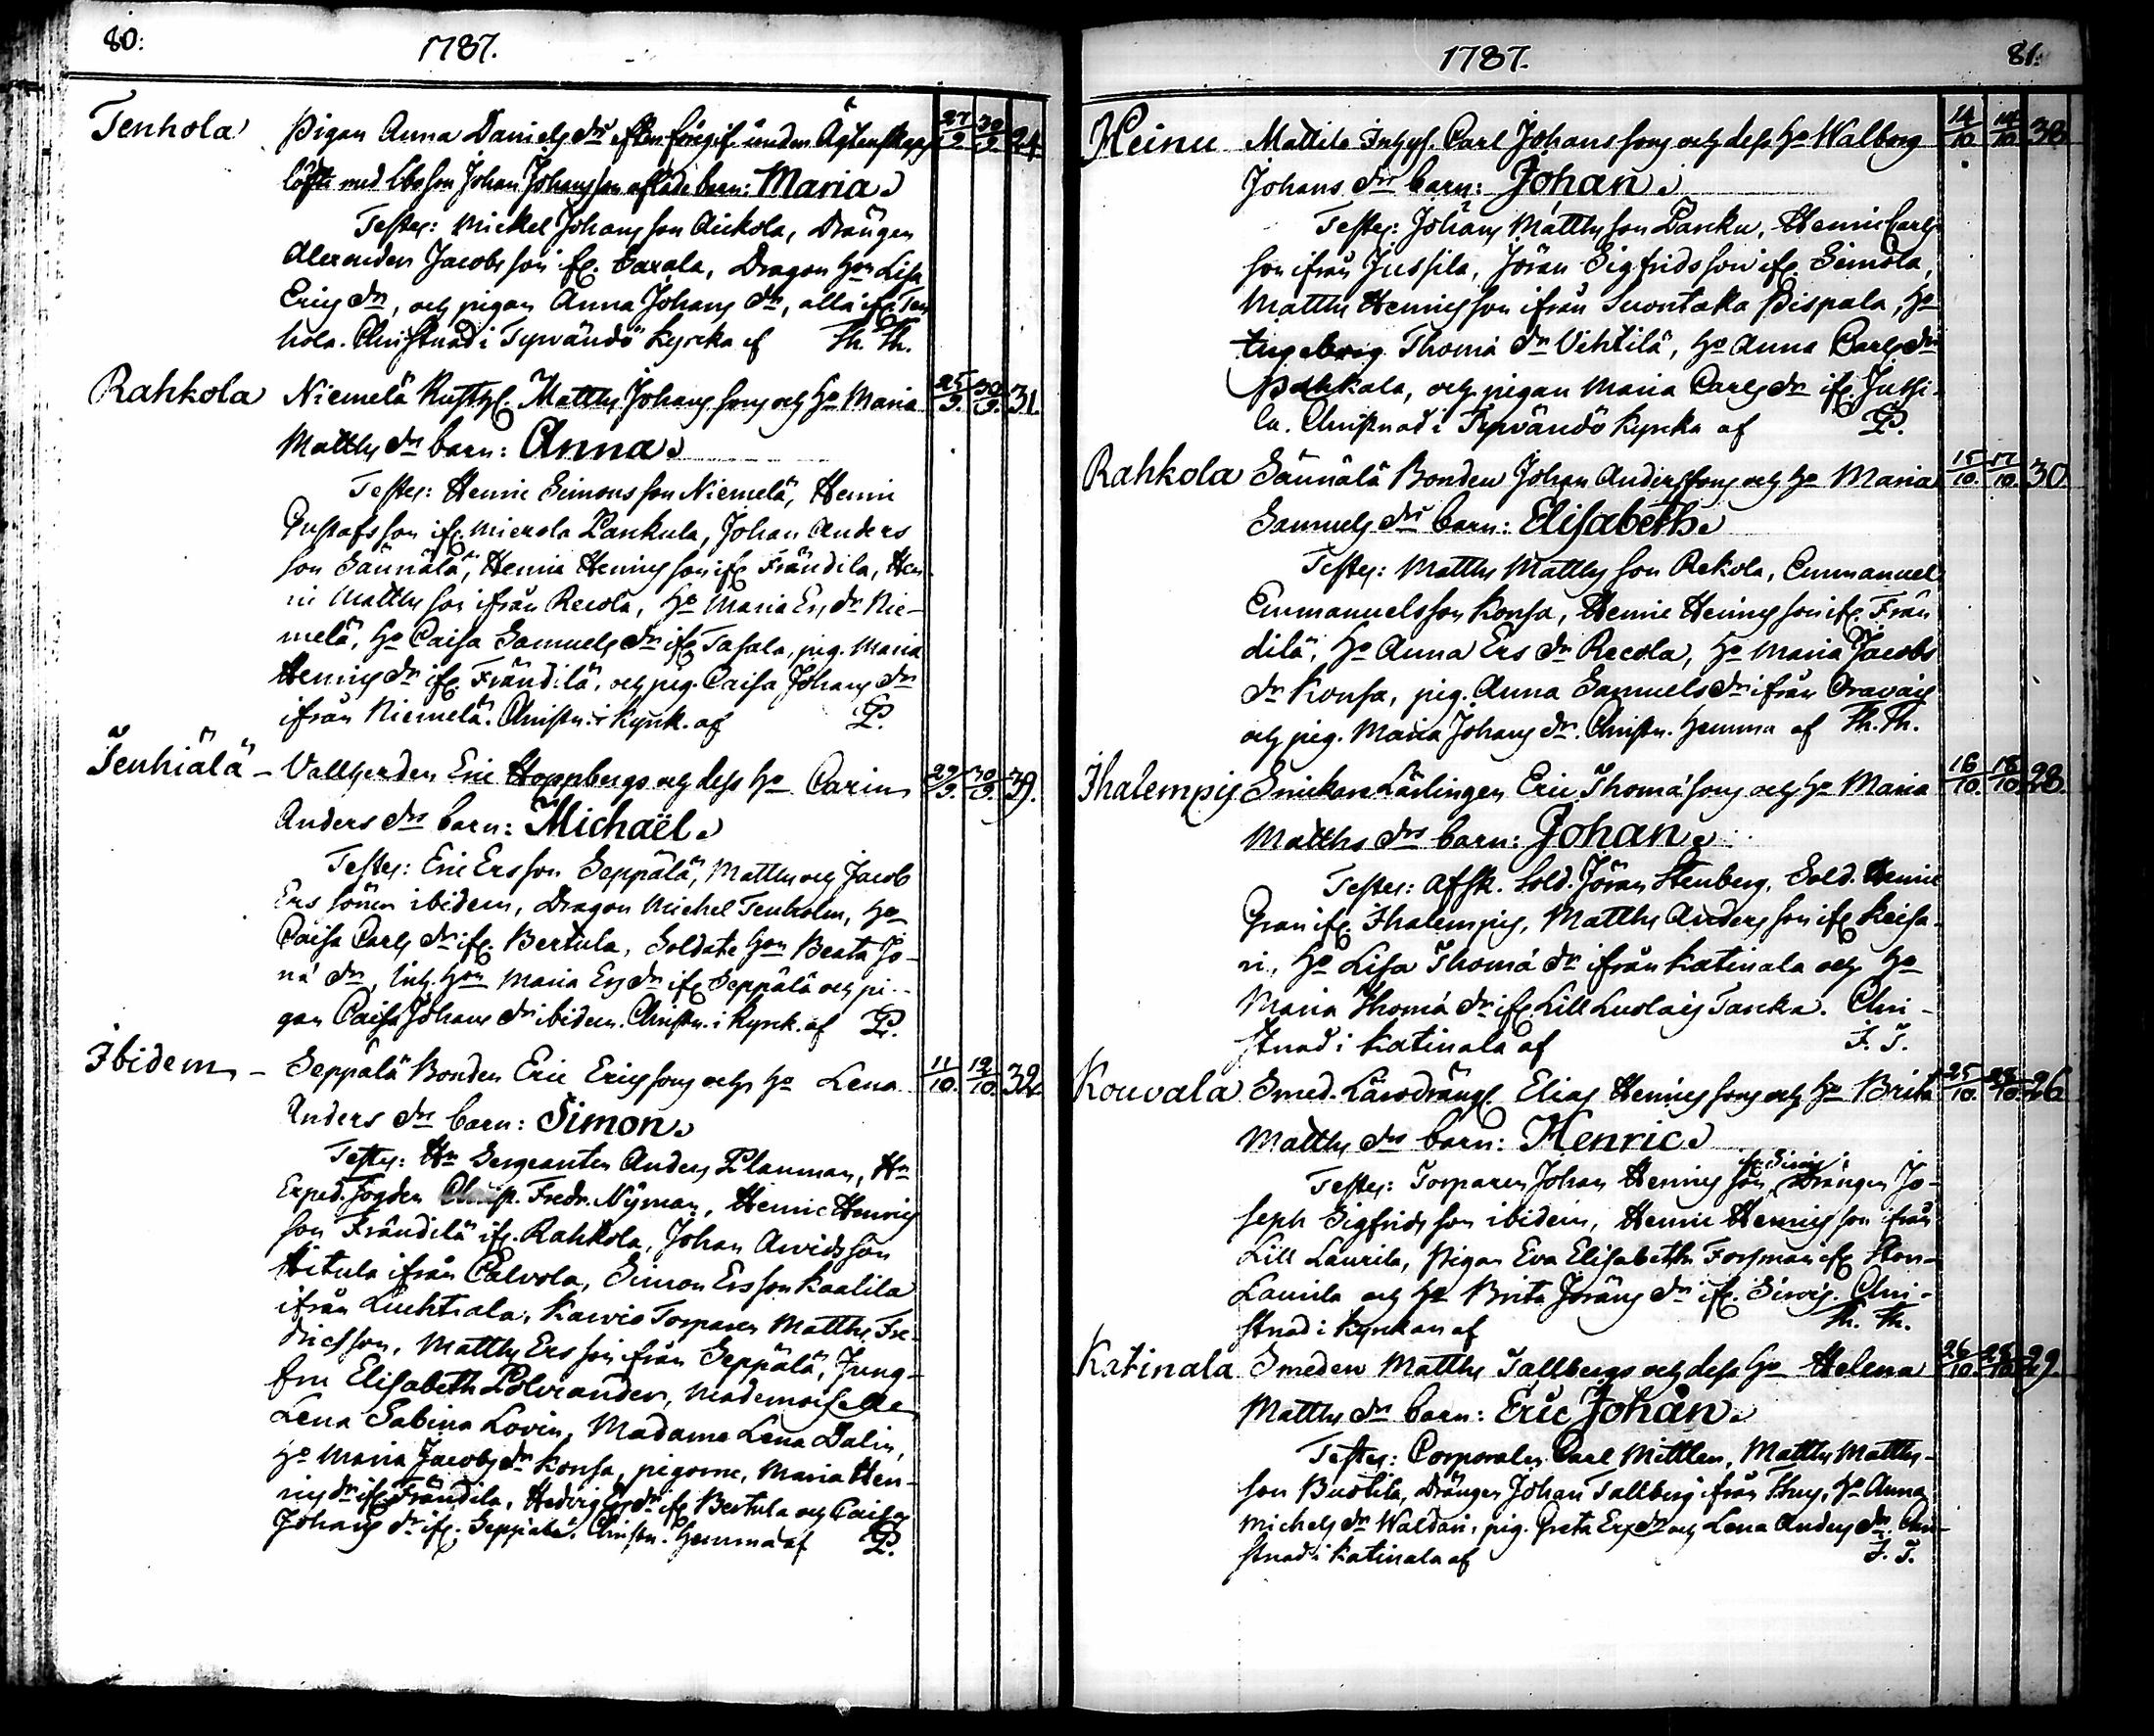 80:
1787.
Tenhola Pigan Anna Daniels dr efter föregif. under Ägtenskaps 27/9 30/9 24
löfte med Lbosson Johan Johansson aflade barn: Maria
Testes: Mickel Johansson Aickola, Drängen
Alexander Jacobsson ifr. Saxala, Dragon Hon Lisa
Erics dr, och pigan Anna Johans dr, alla ifr. Ten
hola. Christnad i Tyrvändö kyrcka af Th. Th.
Rahkola Niemelä Rusth. Matths Johanssons och Ho Maria 25/9. 30/9. 31.
Matths dr barn: Anna
Testes: Henric Simonsson Niemelä, Henric
Gustafsson ifr. Mierola Pankula, Johan Anders
son Sännälä, Henric Henricsson ifr. Frändila, Hen
ric Matthsson ifrån Recola, Ho Maria Ers dr Nie-
melä, Ho Caisa Samuels dr ifr. Tasala, pig. Maria
Henrics dr ifr. Frändilä, och pig. Caisa Johans dr
ifrån Niemelä. Christn. i kyrk. af P.
Tenhiälä - Vallherden Eric Hoppbergs och dess Ho Carin 29/9. 30/9. 39.
Anders drs barn: Michaël
Testes: Eric Ersson Seppälä, Matths och Jacob
Ers söner ibidem, Dragon Michel Tenholm, Ho
Caisa Carls dr ifr. Bertula, Soldate Hon Beata Jo-
næ dr, Inh. Hon Maria Ers dr ifr. Seppälä och pi-
gan Caisa Johans dr ibidem. Christn. i kyrk. af P.
Ibidem - Seppälä Bonden Eric Ericssons och Ho Lena 11/10. 12/10. 32
Anders drs barn: Simon
Testes: Hr Sergeanten Anders Planman, Hr
Exped. Fogden Christ. Fredr. Nyman, Henric Henrics
son Frändilä ifr. Rahkola, Johan Arvidsson
Hitula ifrån Calvola, Simon Ersson Kaalila
ifrån Luchtiala, Karvio Torparen Matths Fre-
dricsson, Matths Ersson ifrån Seppälä, Jung-
fru Elisabeth Polviander, Mademoiselle
Lena Sabina Lovin, Madame Lena Dalin,
Ho Maria Jacobs dr Konsa, pigorne, Maria Hen-
rics dr ifr. Frändila, Hedvig Ers dr ifr. Bertula och Caisa
Johans dr ifr. Seppälä. Christn. hemma af P.
1787.
81.
Heinu Mattila Inhys. Carl Johanssons och dess Ho Walborg 14/10 14/10 38
Johans drs barn: Johan
Testes: Johans Matthsson Pancku, Henric Carls
son ifrån Jussila, Jöran Sigfridsson ifr. Simola,
Matths Henricsson ifrån Suontaka Pispala, Ho
Ingeborg Thomæ dr Vihtilä, Ho Anna Carls dr
Pahkala, och pigan Maria Carls dr ifr. Jussi-
la. Christnad i Tyrvändö kyrcka af P.
Rahkola Sännälä Bonden Johan Anderssons och Ho Maria 15/10. 17/10. 30.
Samuels drs barn: Elisabeth
Testes: Matths Matthsson Rekola, Emmanuel
Emmanuelsson Konsa, Henric Henricsson ifr. Frän
dilä, Ho Anna Ers dr Recola, Ho Maria Jacobs
dr Konsa, pig. Anna Samuels dr ifrån
och pig. Maria Johans dr. Christn. hemma af Th. Th.
Ihalempis Snickare Lärlingen Eric Thomæsons och Ho Maria 16/10. 18/10. 28.
Matths drs barn: Johan
Testes: Afsk. Sold. Jöran Stenberg, Sold. Henric
Gran ifr. Ihalempis, Matths Andersson ifr. Keisa-
ri, Ho Lisa Thomæ dr ifrån Katinala och Ho
Maria Thomæ dr ifr. Lill Luolais Tancka. Chri-
stnad i Katinala af J. T.
Kouvala Smed. Lärodrängs. Elias Henricssons och Ho Brita 25/10. 28/10. 26
Matths drs barn: Henric
Testes: Torparen Johan Henricsson, ifr. Sirvis, Drängen Jo-
seph Sigfridsson ibidem, Henric Henricsson ifrån
Lill Laurila, Pigan Eva Elisabeth Forsman ifr. Stor-
Laurila och Ho Brita Jörans dr ifr. Sirvis. Chri-
stnad i kyrckan af Th. Th.
Katinala Smeden Matths Tallbergs och dess Ho Helena 26/10. 28/10 29.
Matths dr barn: Eric Johan
Testes: Corporalen Carl Mittlen, Matths Matths-
son Buotila, Drängen Johan Tallberg ifrån Thuy, Ho Anna
Michels dr Waldari, pig. Greta Ers dr och Lena Anders dr. Chri-
stnad i Katinala af J. T.